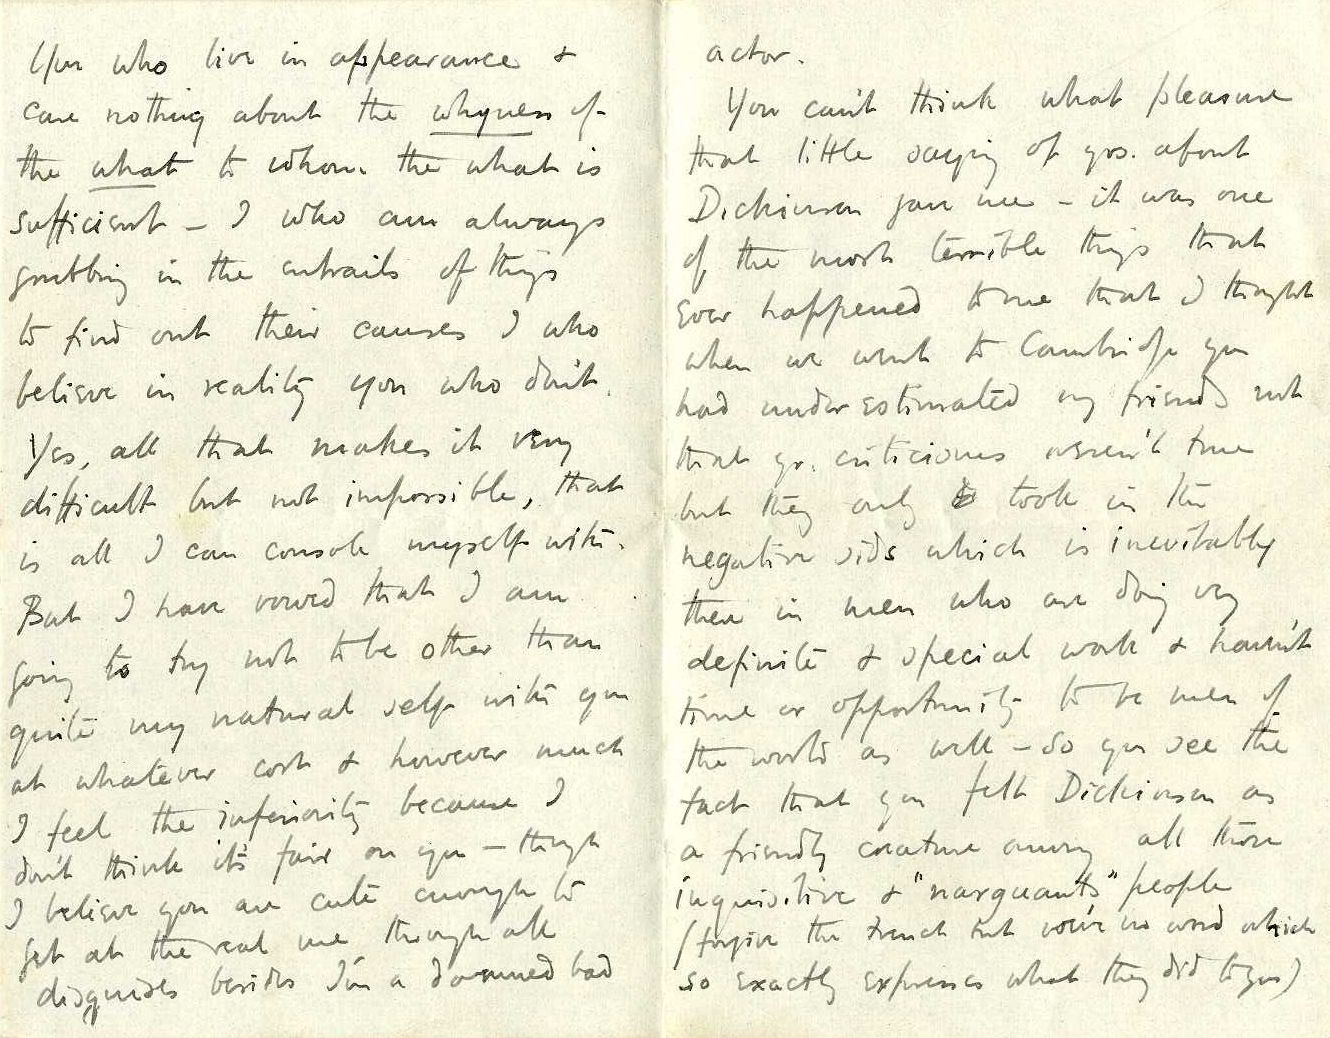 You who live in appearance &
care nothing about the whyness of
the what to whom the what is
sufficient – I who am always
grubbing in the entrails of things
to find out their causes I who
believe in reality you who don't.
Yes, all that makes it very
difficult but not impossible, that
is all I can console myself with.
But I have vowed that I am
going to try not to be other than
quite my natural self with you
at whatever cost & however much
I feel the inferiority because I
don't think it's fair on you – though
I believe you are cute enough to
get at the real me through all
disguises besides I'm a damned bad
actor.
You can't think what pleasure
that little saying of yrs. about
Dickinson gave me – it was one
of the most terrible things that
ever happened to me that I thought
when we went to Cambridge you
had underestimated my friends not
that yr. criticisms weren't true
but they only took in the
negative side which is inevitably
there in men who are doing very
definite & special work & haven't
time or opportunity to be men of
the world as well – so you see the
fact that you felt Dickinson as
a friendly creature among all those
inquisitive & "narquants" people
(forgive the French but we've no word which
so exactly expresses what they did to you)